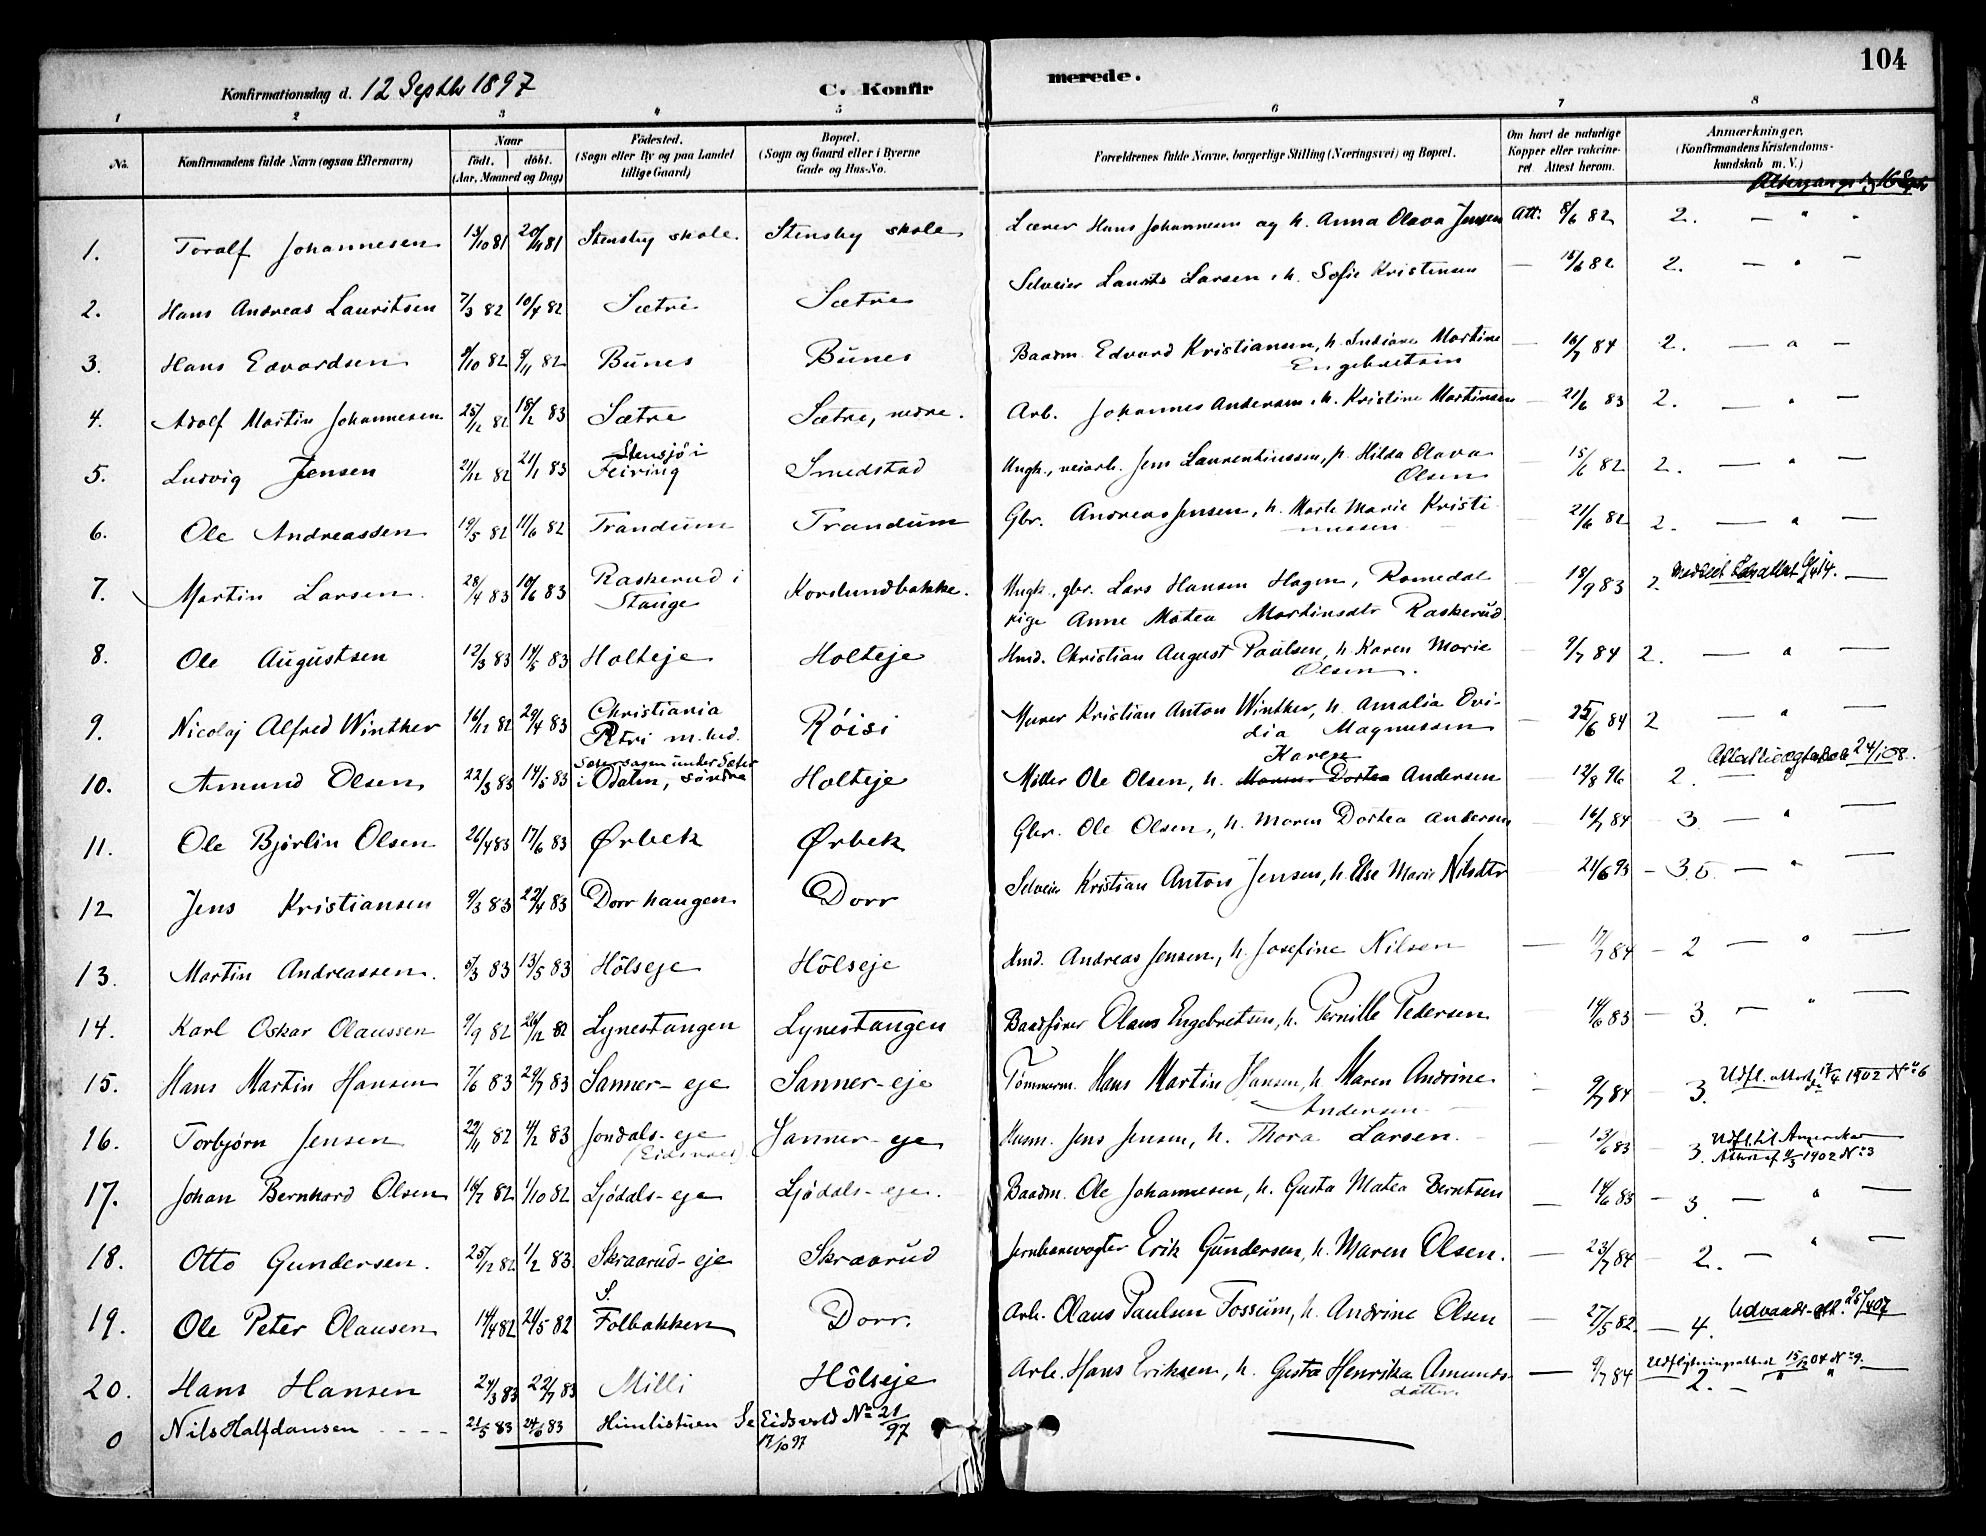 104
Konfirmationsdag d. 12 Septbr 1897 C. Konfirmerede.
1 2 3 4 5 6 7 8
No. Konfirmandens fulde Navn (ogsaa Efternavn) Naar födt. döbt. (Aar, Maaned og Dag) Födested. (Sogn eller By og paa Landet tillige Gaard) Bopæl. (Sogn og Gaard eller i Byerne Gade og Hus-No. Forældrenes fulde Navne, borgerlige Stilling (Næringsvei) og Bopæl. Om havt de naturlige Kopper eller vakcineret Attest herom. Anmærkninger. (Konfirmandens Kristendomskundskab m. V.)
Altergangsdag 16 Septr
1. Toralf Johannesen 13/10 81 20/11 81 Stensby skole. Stensby skole Lærer Hans Johannesen og h. Anna Olava Jensen Att. 8/6 82 2. — " "
2. Hans Andreas Lauritsen 7/3 82 10/4 82 Sætre Sætre Selveier Laurits Larsen, h. Sofie Kristensen — 15/6 82 2. — " —
3. Hans Edvardsen 9/10 82 9/11 82 Bunes Bunes Baadm. Edvard Kristiansen, h. Martine Engebretsen — 16/7 84 2. — " —
4. Adolf Martin Johannesen 25/12 82 18/2 83 Sætre Sætre, nedre. Arb. Johannes Andersen, h. Kristine Martinsen — 21/6 83 2. — " —
5. Ludvig Jensen 21/12 82 21/1 83 Stensjö i Feiring Smedstad Ungk., veiarb. Jens Laurentiussen, p. Hilda Olava Olsen 15/6 82 2. — " —
6. Ole Andreassen 19/5 82 11/6 82 Trandum Trandum Gbr. Andreas Jensen, h. Marte Marie Kristi — 21/6 82 2. — " —
7. Martin Larsen. 28/4 83 10/6 83 Raskerud i Stange Korslundbakke. Ungk., gbr. Lars Hansen Hagen, Romedal — 18/9 83 2. —
pige Anne Matea Martinsdtr Raskerud.
8. Ole Augustsen 12/3 83 14/5 83 Holteje Holteje Hmd. Christian August Paulsen, h. Karen Marie Olsen. — 9/7 84 2. — " —
9. Nicolaj Alfred Winther 16/12 82 29/4 83 Christiania Petri m.hd. Röisi Murer Kristian Anton Winther, h. Amalia Ovidia Magnussen — 25/6 84 2 — " —
10. Amund Olsen 22/3 83 14/5 83 i Odalen, söndre Holteje Möller Ole Olsen, h. Karen Maren Dortea Andersen 12/8 96 2. 24/1 08.
11. Ole Bjørlin Olsen 26/4 83 17/6 83 Ørbek Ørbek Gbr. Ole Olsen, h. Maren Dortea Andersen — 16/7 84 — 3. — " —
12 Jens Kristiansen 9/3 83 22/4 83 Dorrhaugen Dorr Selveier Kristian Anton Jensen, h. Else Marie Nilsdtr — 21/6 93 — 3.5. — " —
13. Martin Andreassen. 5/3 83 13/5 83 Hölseje Hölseje Hmd. Andreas Jensen, h. Josefine Nilsen — 17/7 84 — 2 — " —
14. Karl Oskar Olaussen 9/9 82 26/12 82 Lynestangen Lynestangen Baadfører Olaus Engebretsen, h. Pernille Pedersen 14/6 83 — 3. — " —
15. Hans Martin Hansen 7/6 83 29/7 83 Sanner-eje Sanner-eje Tømmerm. Hans Martin Hansen, h. Maren Andrine Andersen — 9/7 84 3. Udfl. attest 17/4 1902 No 6
16. Torbjørn Jensen 22/11 82 4/2 83 Jondals-eje (Eidsvold) Sanner-eje Husm. Jens Jensen, h. Thora Larsen. — 13/6 83 — 3. Udfl. til Amerika Attest af 9/3 1902 No 3
17. Johan Bernhard Olsen 16/7 82 1/10 82 Ljödals-eje Ljödals-eje. Baadm. Ole Johannesen, h. Gusta Matea Berntsen — 14/6 83 — 3. — " —
18. Otto Gundersen. 25/12 82 1/2 83 Skraarud-eje Skraarud Jernbanevogter Erik Gundersen, h. Maren Olsen. — 23/7 84 — 2. — " —
19. Ole Peter Olausen 14/4 82 21/5 82 S. Folbakken Dorr. Arb. Olaus Paulsen Fossum, h. Andrine Olsen — 27/5 82. — 4. Udvandr.att. 25/4 07
20. Hans Hansen 24/3 83 22/7 83 Milli Hölseje Arb. Hans Eriksen, h. Gusta Henrika Amundsdatter. — 9/7 84 2. — Udflytningsattest 15/2 04 No 9. —
0 Nils Halfdansen 21/5 83 24/6 83 Himlistuen Se Eidsvold No 21/97
17/10 97